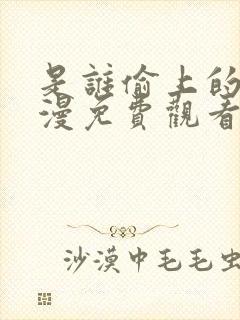 是誰偷上的
漫免費觀看
沙漠中毛毛虫